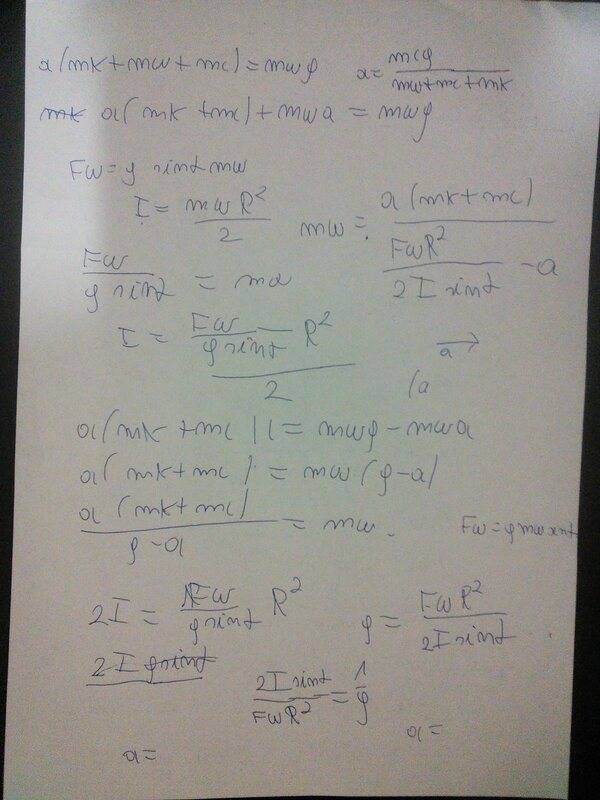 a(mk+mw+mc)=mwg   a= mcg / (mw+mc+mk)
mk a(mk+mc)+mwa = mwg
Fw=g sint mw
I = mwR² / 2   mw = a(mk+mc) / (FwR² / (2I sint) - a)
Fw / (g sint) = ma
I = (Fw / (g sint) R²) / 2   a →
(a
a(mk+mc)(= mwg-mwa
a(mk+mc) = mw(g-a)
a(mk+mc) / (g-a) = mw.   Fw=gmwsint
2I = Fw / (g sint) R²   g = FwR² / (2I sint)
2Igsint   2I sint / (FwR²) = 1/g
a=   a=